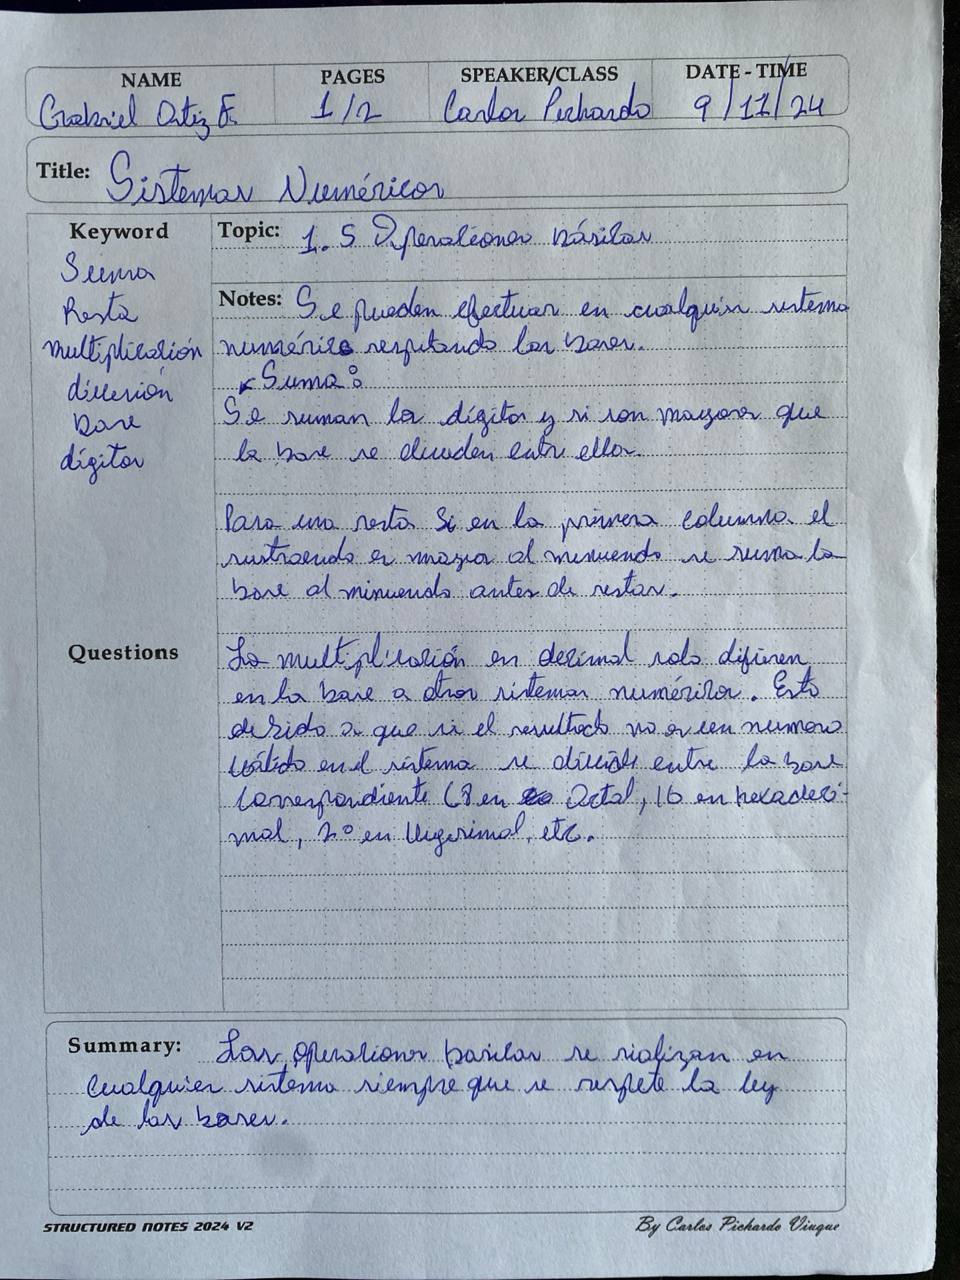 NAME PAGES SPEAKER/CLASS DATE - TIME
Gabriel Ortiz F. 1/2 Carlos Pichardo 9/11/24
Title: Sistemas Numéricos
Keyword
Suma
Resta
multiplicación
división
base
dígitos
Topic: 1.5 Operaciones básicas
Notes: Se pueden efectuar en cualquier sistema
numérico respetando las bases.
Suma:
Se suman los dígitos y si son mayores que
la base se dividen entre ellos.
Para una resta si en la primera columna el
sustraendo es mayor al minuendo se suma la
base al minuendo antes de restar.
Questions
La multiplicación en decimal solo difieren
en la base a otros sistemas numéricos. Esto
debido a que si el resultado no es un numero
válido en el sistema se divide entre la base
correspondiente (8 en Octal, 16 en hexadeci-
mal, 20 en Vigesimal, etc.
Summary: Las operaciones basicas se realizan en
cualquier sistema siempre que se respete la ley
de las bases.
STRUCTURED NOTES 2024 V2 By Carlos Pichardo Viuque